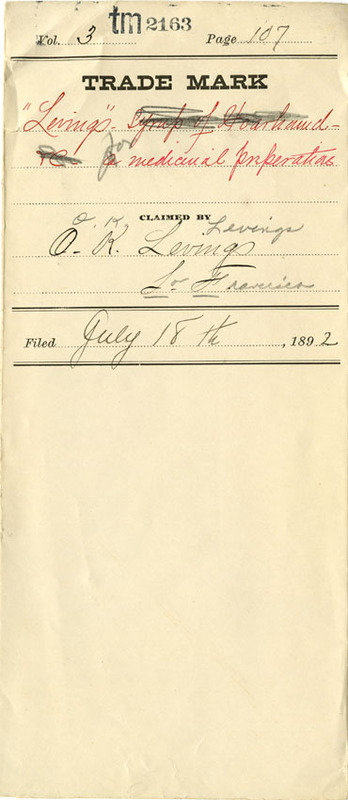 tm 2163
Vol. 3 Page 107
TRADE MARK
"Levings" Syrup of Hoarhound
for a medicinal preparation
CLAIMED BY
O. K. Levings
O. K. Levings
So Francisco
Filed July 18th, 1892